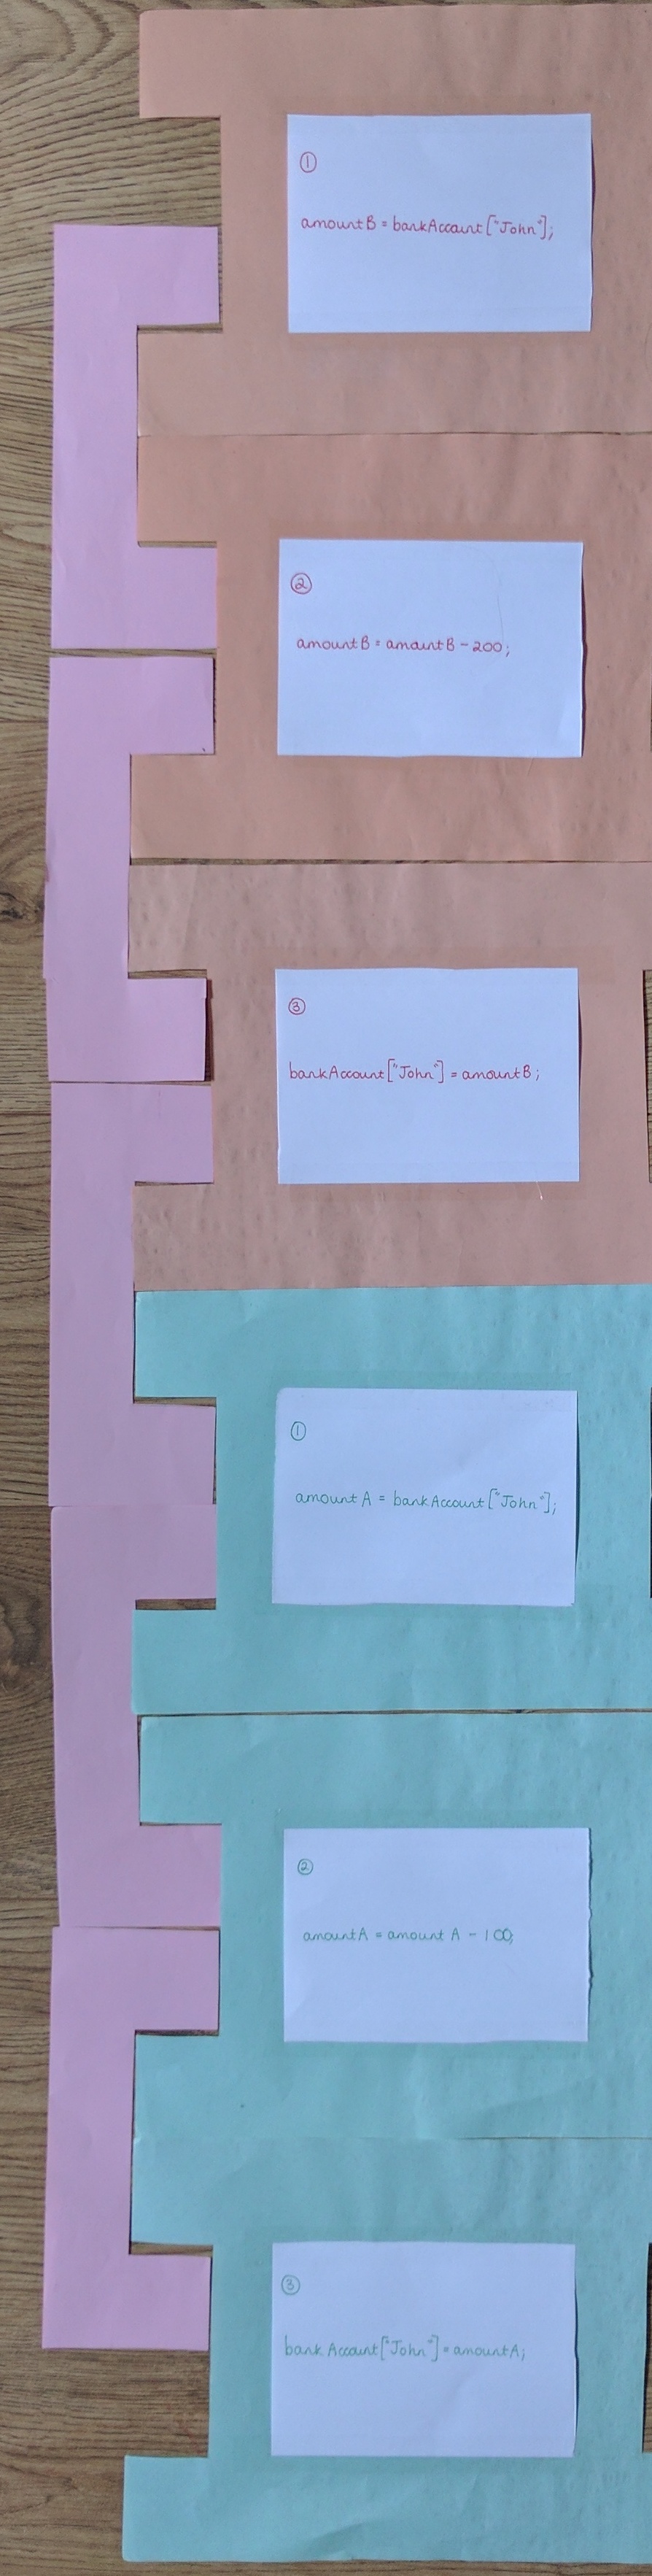 ①
amountB = bankAccount["John"];
②
amountB = amountB - 200;
③
bankAccount["John"] = amountB;
①
amount A = bankAccount["John"];
②
amountA = amount A - 100;
③
bankAccount["John"] = amountA;